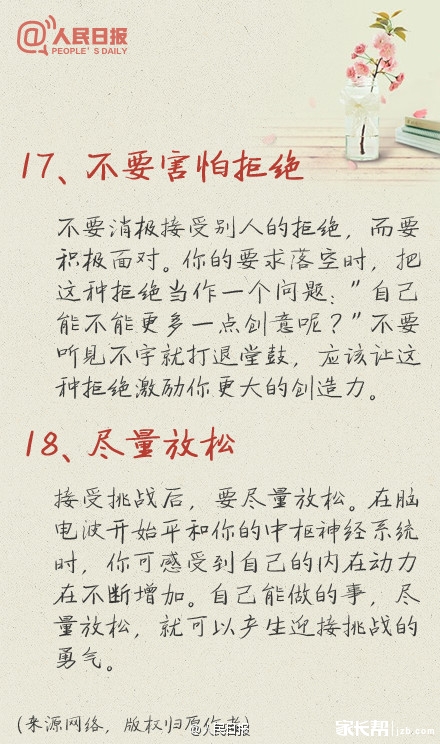 @人民日报
PEOPLE'S DAILY
17、不要害怕拒绝
不要消极接受别人的拒绝，而要
积极面对。你的要求落空时，把
这种拒绝当作一个问题：”自己
能不能更多一点创意呢？”不要
听见不字就打退堂鼓，应该让这
种拒绝激励你更大的创造力。
18、尽量放松
接受挑战后，要尽量放松。在脑
电波开始平和你的中枢神经系统
时，你可感受到自己的内在动力
在不断增加。自己能做的事，尽
量放松，就可以产生迎接挑战的
勇气。
(来源网络，版权归原作者)
@人民日报
家长帮 jzb.com